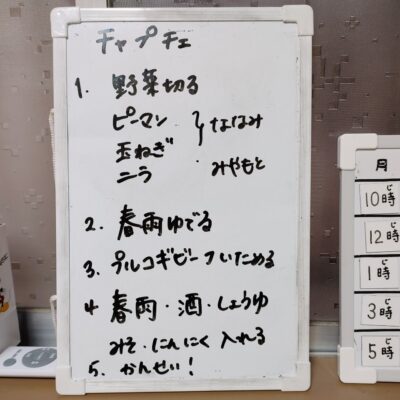 チャプチェ
1. 野菜切る
ピーマン } ななみ
玉ねぎ
ニラ ・ みやもと
2. 春雨ゆでる
3. プルコギビーフいためる
4 春雨・酒・しょうゆ
みそ・にんにく 入れる
5. かんせい!
月
10時じ
12時じ
1時じ
3時じ
5時じ